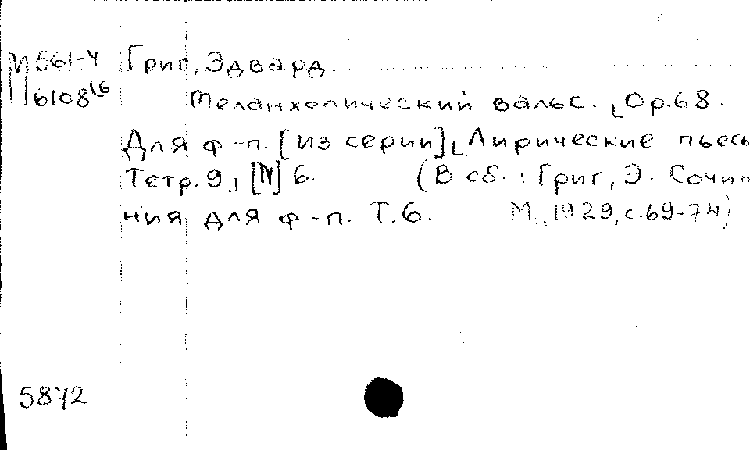 М 561-4 Григ, Эдвард
М 6108 16 Меланхолический вальс. Op.68.
Для ф-п. [из серии] Лирические пьесы
Тетр. 9, [N] 6. (В сб.: Григ, Э. Сочине
ния для ф-п. Т.6. М., 1929, с.69-74)
5872